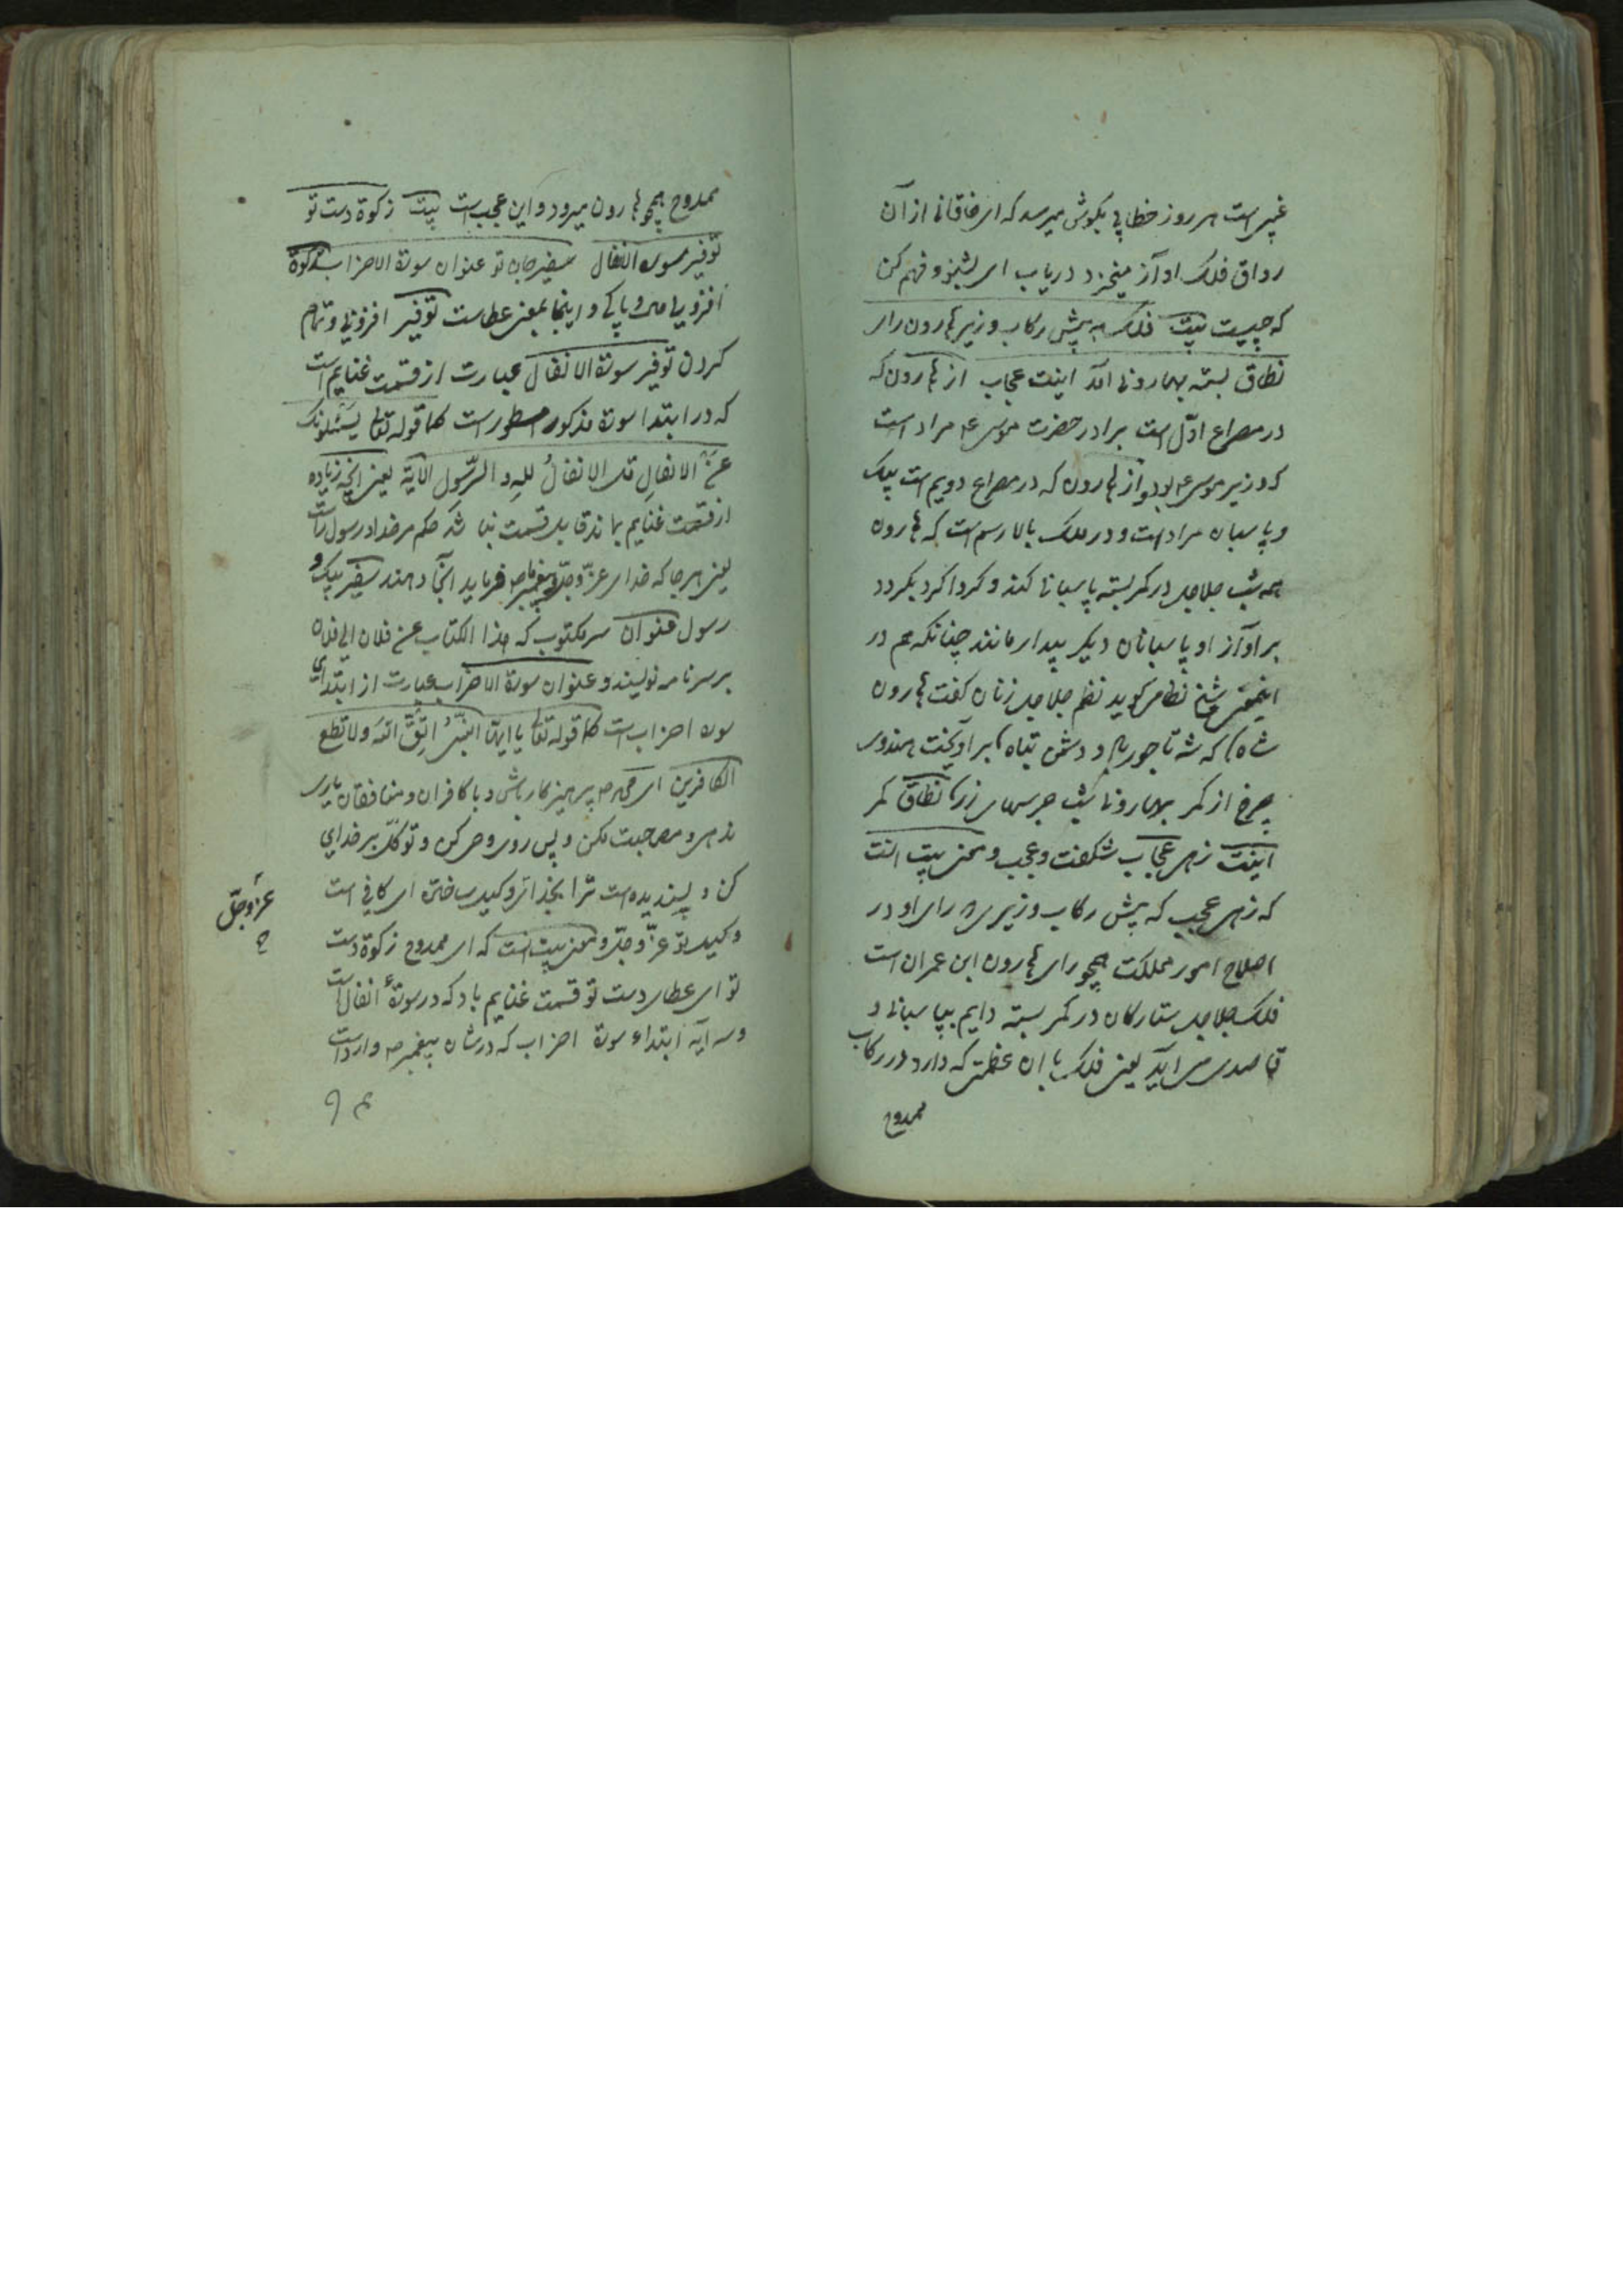 غیب است هر روز خطابی بگوش میرسد که ای خاقانی از آن
رواق فلک او آواز میخیزد دریاب ای بشنو و فهم کن
که چیست بیت فلک به پیش رکاب وزیر هارون رای
نطاق بسته بهارونی آمد اینت عجاب از هارون که
در مصراع اول است برادر حضرت موسی ع مراد است
که وزیر موسی ع بود و از هارون که در مصراع دویم است پیک
و پاسبان مراد است و در ملک بالا رسم است که هارون
همه شب جلاجل در کمر بسته پاسبانی کند و گردا گرد بگردد
بر آواز او پاسبانان دیگر بیدار مانند چنانکه هم در
اینمعنی شیخ نظامی گوید نظم جلاجل زنان گفت هارون
شاه که شه تاجور باد و دشمن تباه برآویخت هندوی
چرخ از کمر بهارونی شب جرسهای زر نطاق کمر
اینت زهی عجاب شگفت و عجب و معنی بیت آنست
که زهی عجب که پیش رکاب وزیری که رای او در
اصلاح امور مملکت همچو رای هارون ابن عمران است
فلک جلاجل ستارگان در کمر بسته دایم بپاسبانی و
قاصدی می آید یعنی فلک با آن عظمتی که دارد در رکاب
ممدوح
ممدوح همچو هارون میرود و این عجب است بیت زکوة دست تو
توفیر سورة الانفال سفیر جان تو عنوان سورة الاحزاب زکوة
افزونی و پاکی و اینجا بمعنی عطاست توفیر افزونی و تمام
کردن توفیر سورة الانفال عبارت از قسمت غنایم است
که در ابتدا سورة مذکور مسطور است کما قوله تعا یسئلونک
عن الانفال قل الانفال لله و الرسول الآیة یعنی آنچه زیاده
از قسمت غنایم بماند قابل قسمت نباشد حکم مر خدا و رسول راست
یعنی هر جا که خدای عز و جل و پیغمبر ص فرماید آنجا دهند سفیر پیک و
رسول عنوان سر مکتوب که هذا الکتاب عن فلان الی فلان
بر سر نامه نویسند و عنوان سورة الاحزاب عبارت از ابتدای
سوره احزاب است کما قوله تعا یا ایها النبی اتق الله ولا تطع
الکافرین ای محمد ص پرهیزکار باش و با کافران و منافقان یاری
مده و مصاحبت مکن و پس روی وحی کن و توکل بر خدای
کن و پسندیده است ترا بخدای وکیل ساختن ای کافی است
وکیل تو عز و جل و معنی بیت آنست که ای ممدوح زکوة دست
تو ای عطای دست تو قسمت غنایم باد که در سورة انفال است
و سه آیه ابتداء سورة احزاب که در شان پیغمبر ص وارد است
عز و جل